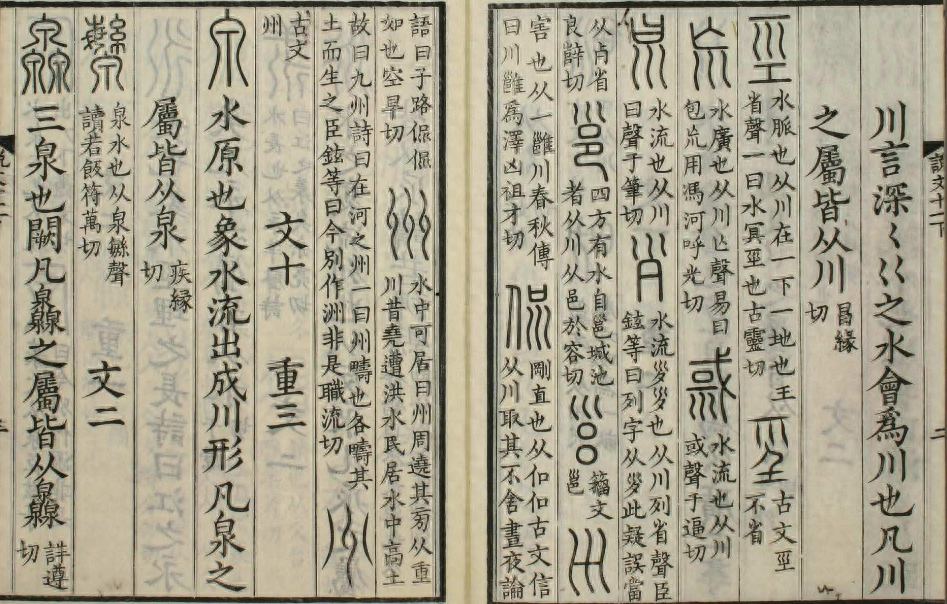 川言深〱巜之水會爲川也凡川
之屬皆从川 昌緣切
巠 水脈也从川在一下一地也王省聲一曰水冥巠也古靈切 巠 古文巠不省
㠩 水廣也从川亡聲易曰包㠩用馮河呼光切 𢒠 水流也从川或聲于逼切
㫟 水流也从川曰聲于筆切 𡿪 水流𡿪𡿪也从川列省聲臣鉉等曰列字从𡿪此疑誤當
从歺省良辥切 邕 四方有水自邕城池者从川从邑於容切 邕 籒文邕 𡿧
害也从一雝川春秋傳曰川雝爲澤凶祖才切 侃 剛直也从㐰㐰古文信从川取其不舍晝夜論
語曰子路侃侃如也空旱切 州 水中可居曰州周遶其菊从重川昔堯遭洪水民居水中高土
故曰九州詩曰在河之州一曰州疇也各疇其土而生之臣鉉等曰今別作洲非是職流切 州
古文州 文十 重三
泉 水原也象水流出成川形凡泉之
屬皆从泉 疾緣切
泉水也从泉緐聲讀若飯符萬切 文二
灥 三泉也闕凡灥之屬皆从灥 詳遵切